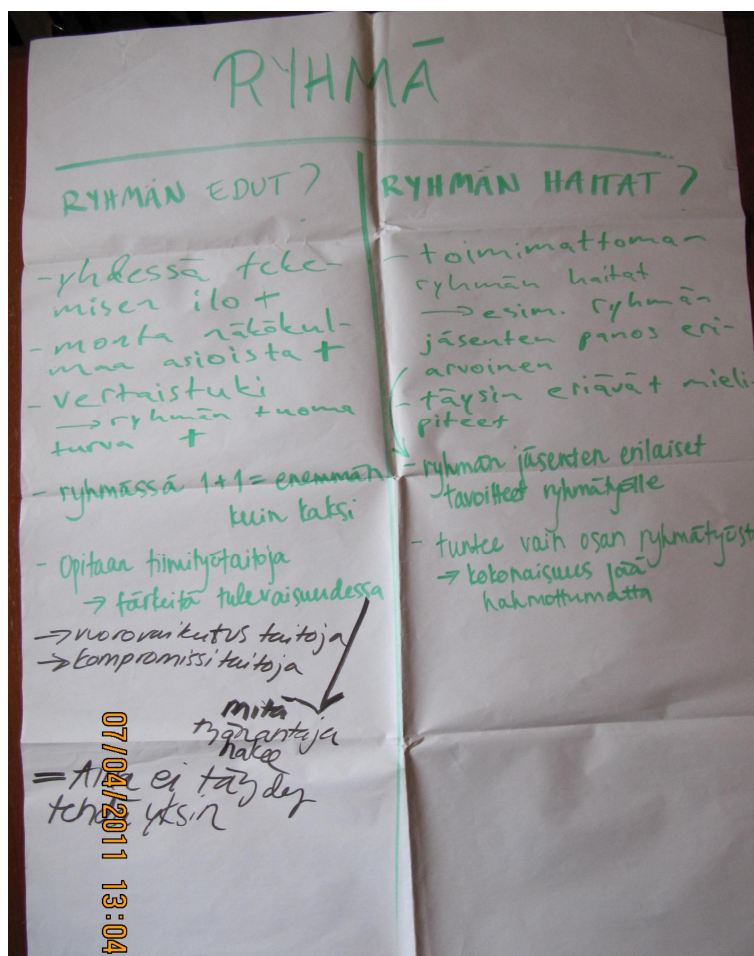 RYHMÄ
RYHMÄN EDUT?
- yhdessä teke-
misen ilo +
- monta näkökul-
maa asioista +
- vertaistuki
→ ryhmän tuoma
turva +
- ryhmässä 1+1 = enemmän
kuin kaksi
- Opitaan tiimityötaitoja
→ tärkeitä tulevaisuudessa
→ vuorovaikutus taitoja
→ kompromissitaitoja
mitä
työnantaja
hakee
= Aina ei täydy
tehdä yksin
RYHMÄN HAITAT?
- toimimattoman
ryhmän haitat
→ esim. ryhmän
jäsenten panos eri-
arvoinen
- täysin eriävät mieli-
piteet
- ryhmän jäsenten erilaiset
tavoitteet ryhmätyölle
- tuntee vain osan ryhmätyöstä
→ kokonaisuus jää
hahmottumatta
07/04/2011 13:04